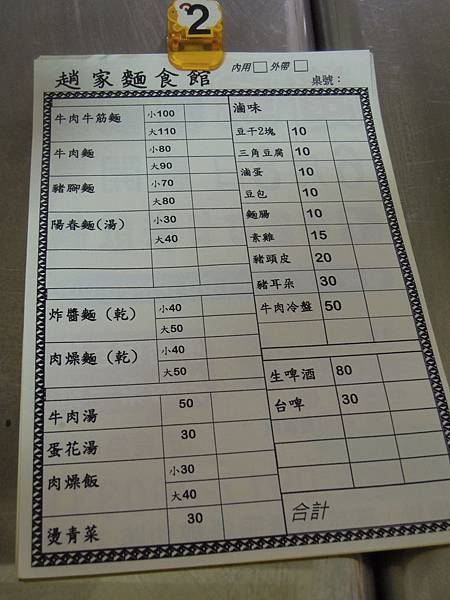 2
內用 外帶
趙家麵食館
桌號：
牛肉牛筋麵 小100
大110
牛肉麵 小80
大90
豬腳麵 小70
大80
陽春麵(湯) 小30
大40
炸醬麵(乾) 小40
大50
肉燥麵(乾) 小40
大50
牛肉湯 50
蛋花湯 30
肉燥飯 小30
大40
燙青菜 30
滷味
豆干2塊 10
三角豆腐 10
滷蛋 10
豆包 10
麵腸 10
素雞 15
豬頭皮 20
豬耳朵 30
牛肉冷盤 50
生啤酒 80
台啤 30
合計